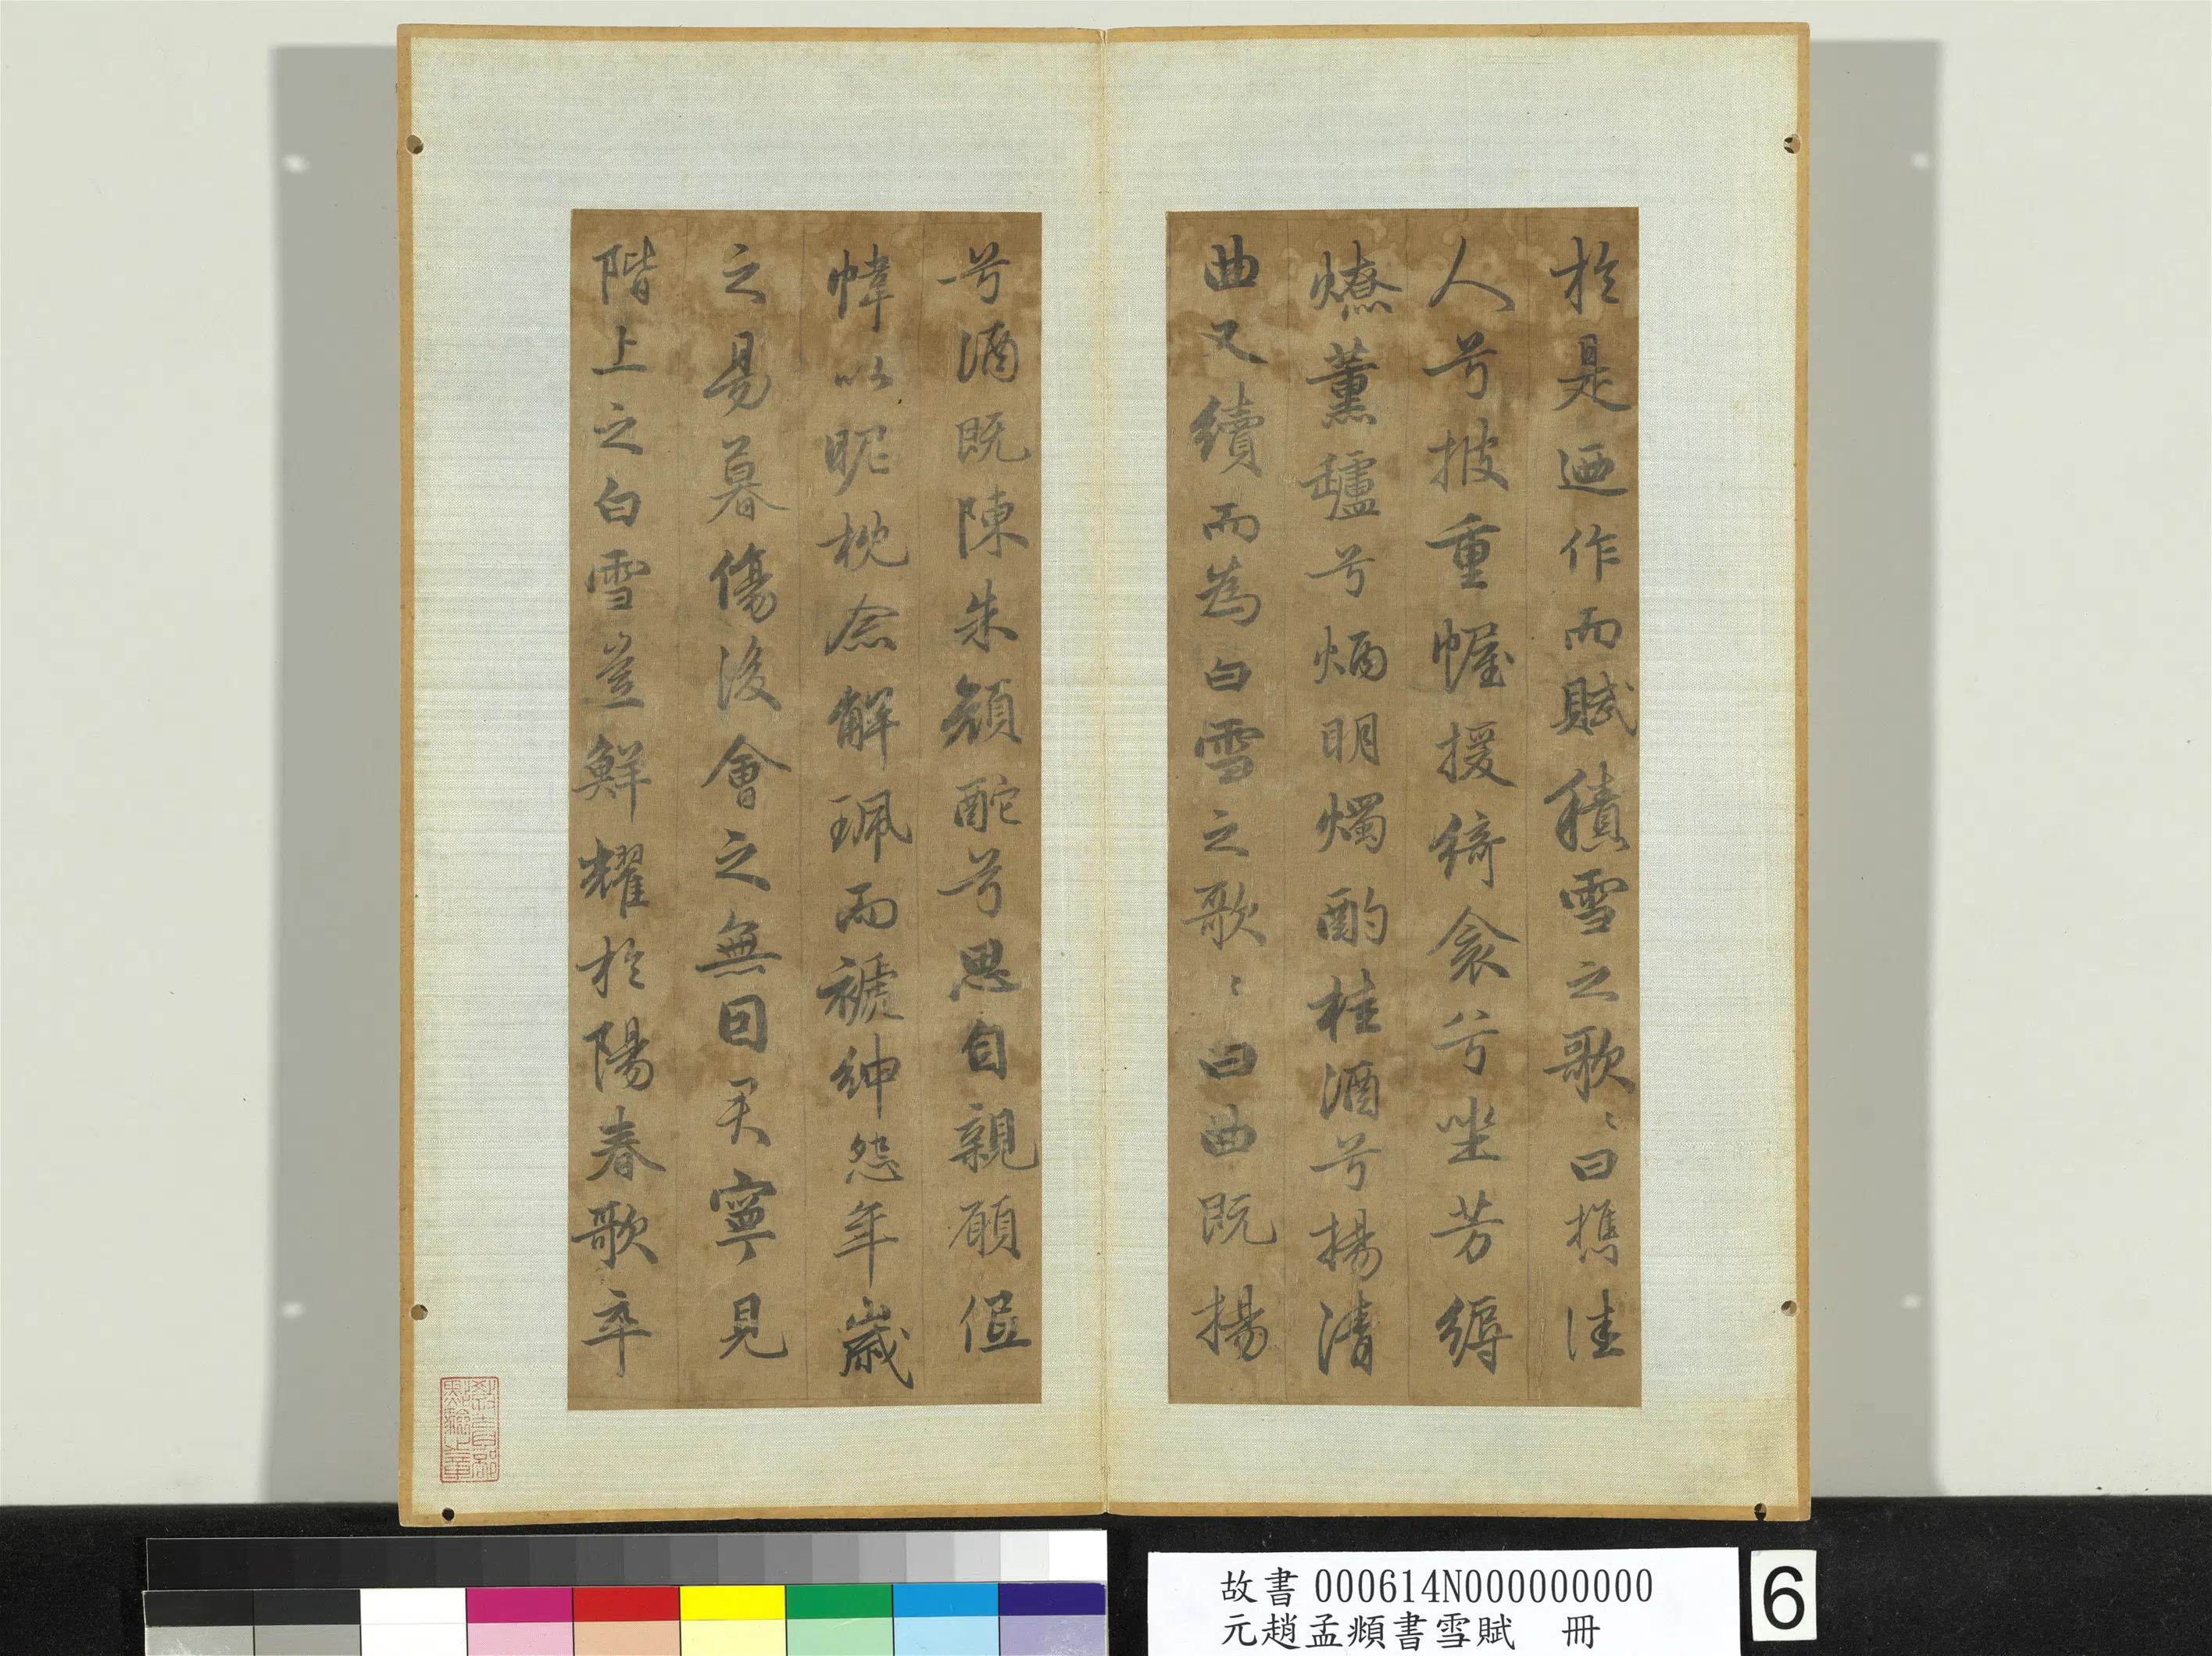 於是迺作而賦積雪之歌〻曰攜佳
人兮披重幄援綺衾兮坐芳縟
燎薰鑪兮炳明燭酌桂酒兮揚清
曲又續而為白雪之歌〻曰曲既揚
兮酒既陳朱顏酡兮思自親願低
帷以昵枕念解珮而褫紳怨年歲
之易暮傷後會之無因君寧見
階上之白雪豈鮮耀於陽春歌卒
故書 000614N000000000
元趙孟頫書雪賦 冊
6